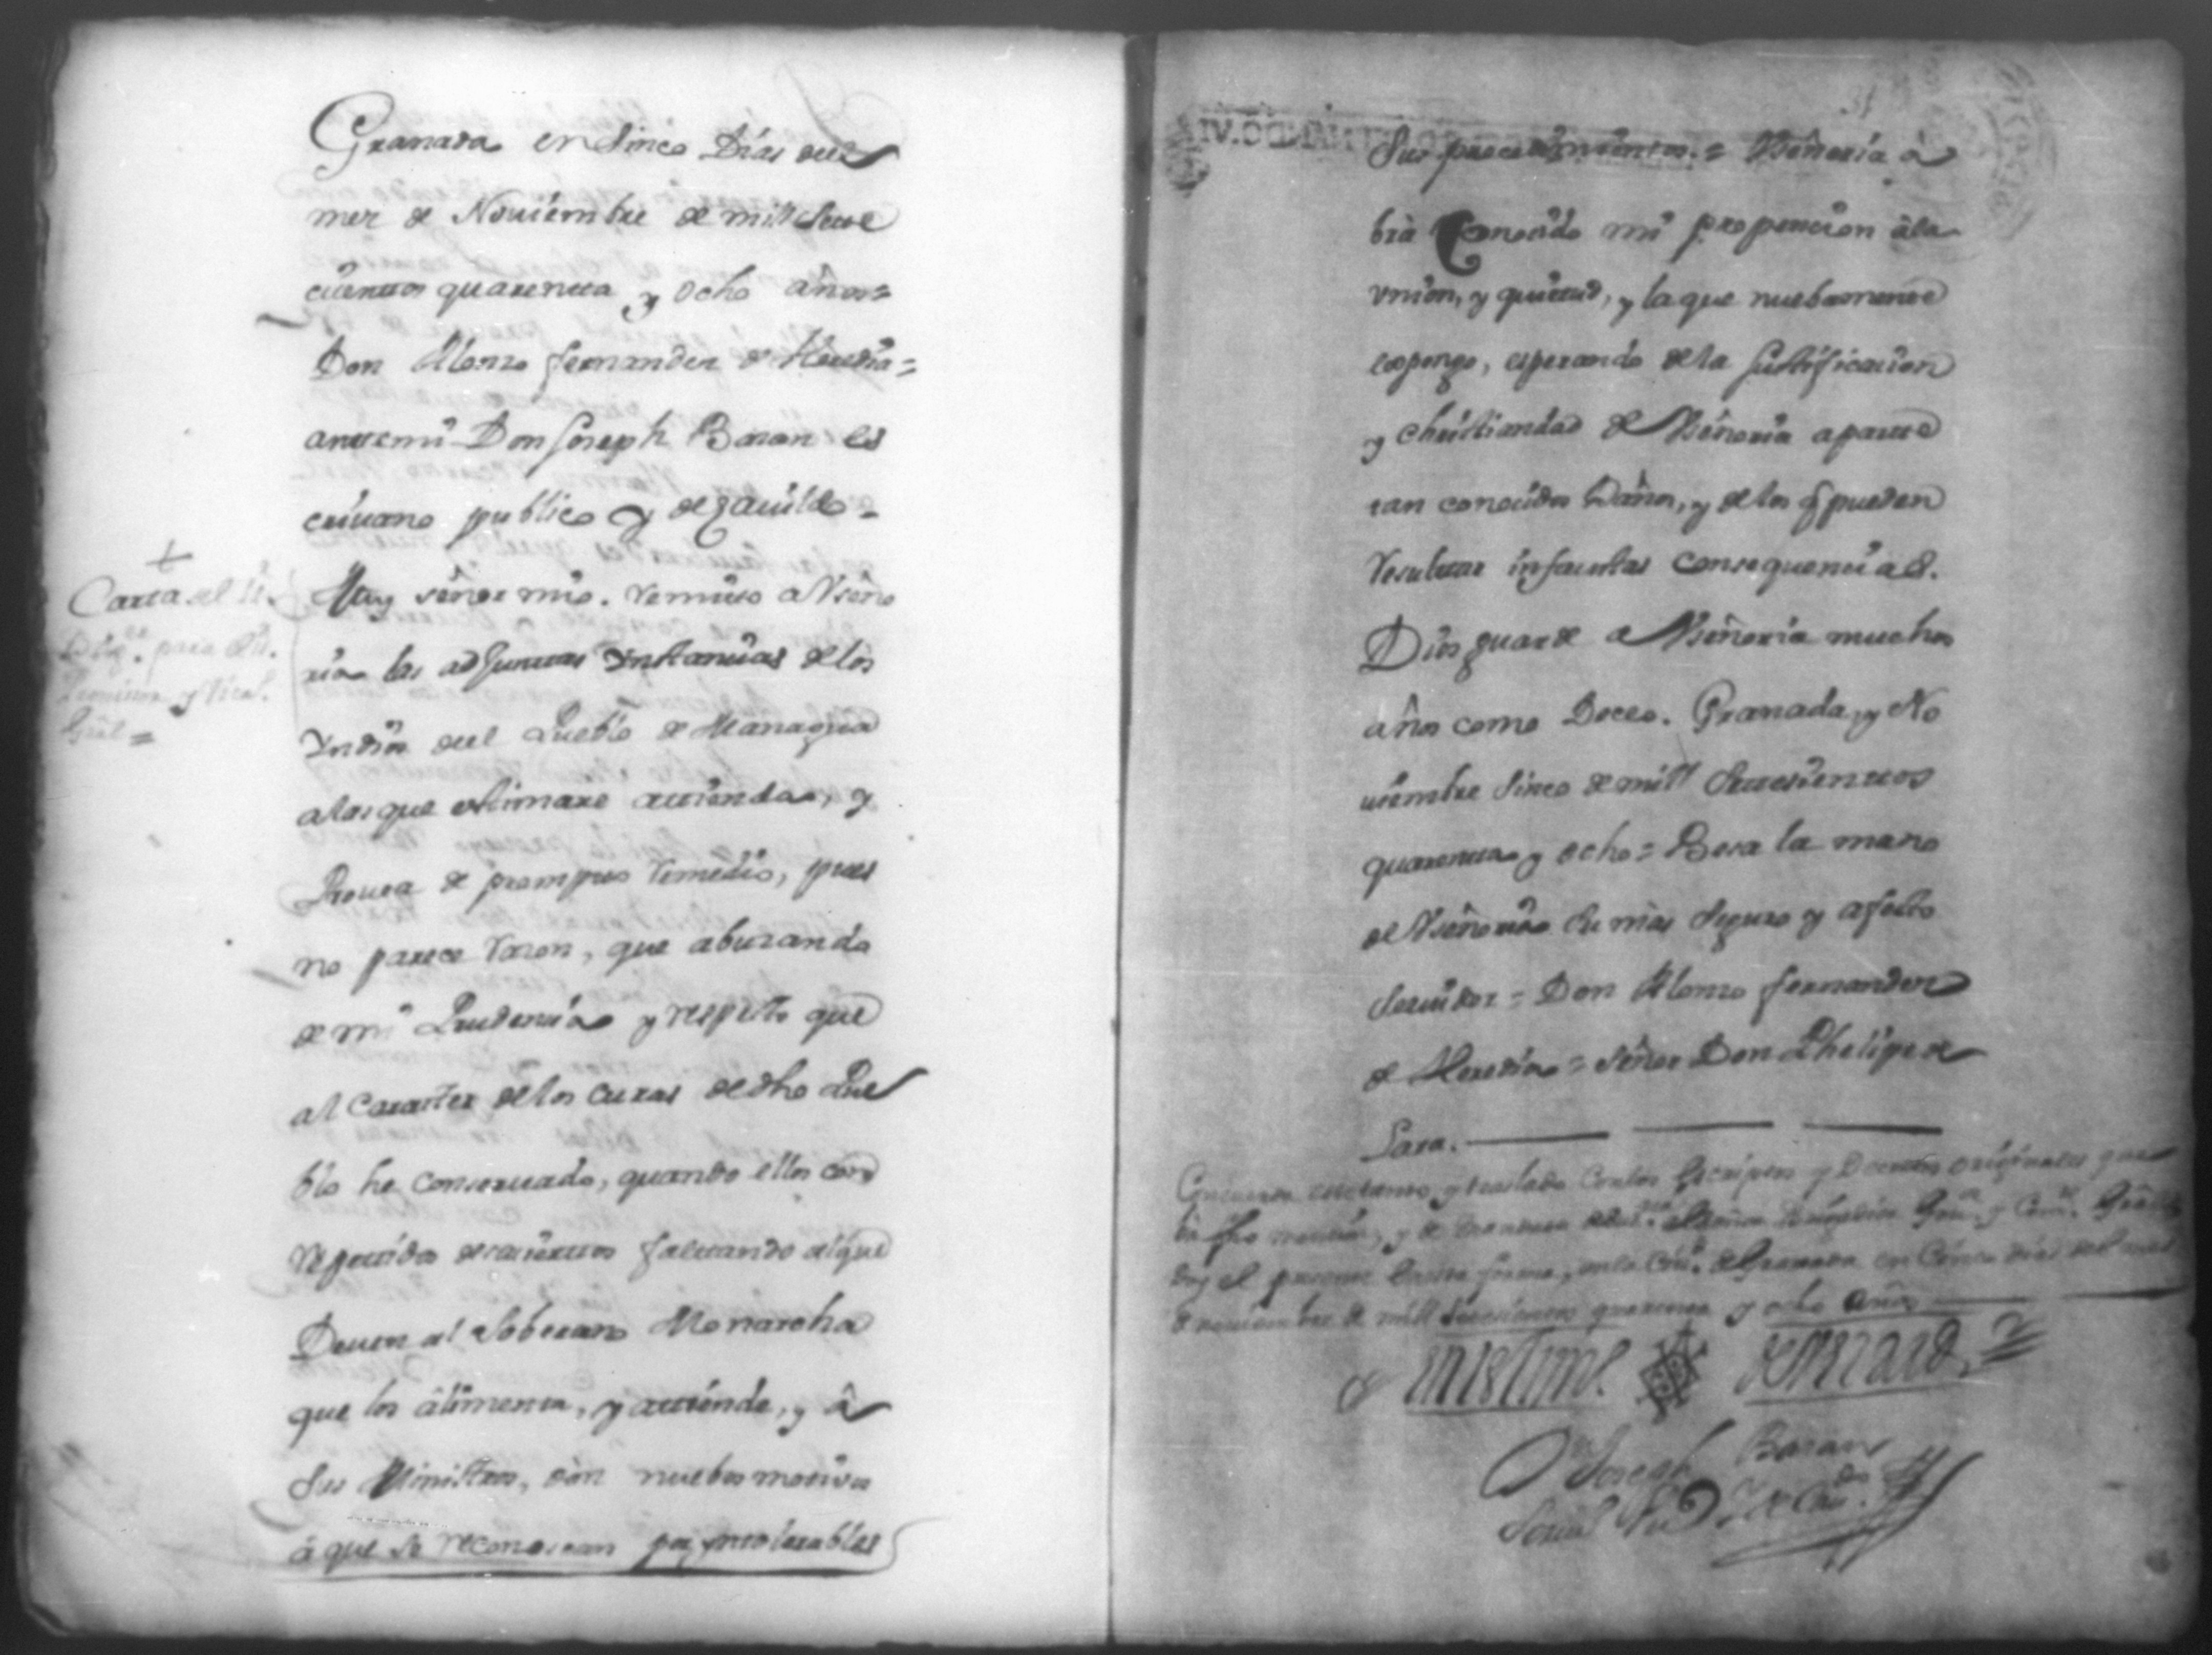 Granada en Sinco Días del
mez de Noviembre de mill Sete
cientos quarenta y ocho años=
Don Alonzo fernandez de Heredia=
antemi Don Joseph Baran es
crivano publico y de cavildo=
Carta al
para el
Provisor y Vica.
Gral=
Muy señor mio. remito a Vseño
ria las adjuntas Ynstancias de los
Yndios del Pueblo de Managua
a las que estimare atienda, y
Provea de prompto remedio, pues
no parece razon, que abuzando
de mi Prudencia y respeto que
al Caracter de los Curas de dho Pue
blo he conservado, quando ellos con
repetidos desaciertos faltando al que
Deven al Soberano Monarcha
que los âlimenta, y atiende, y â
Sus Ministros, dân nuebos motivos
â que se reconoscan por yntolerables
Sus procedimientos.= Vseñoria â
brà conocido mi propencion àla
vnion, y quietud, y la que nuebamente
espongo, esperando de la Justificacion
y christiandad de Vseñoria aparte
tan conocidos daños, y de los q pueden
resultar infaustas consequencias.
Dios guarde a Vseñoria muchos
años como Deceo. Granada, y No
viembre Sinco de mill Setesientos
quarenta y ocho= Besa la mano
de Vseñoria Su mas Seguro y afecto
Servidor= Don Alonzo fernandez
de Heredia= Señor Don Phelipe de
Lara.
Concuerda este tanto, y traslado con los Escriptos y Decretos originales que
se hâ fho mencion, y de mandato del Señor Gov.or y Com.te Gral
doy el presente en esta forma, en la Ciu.d de Granada en Cinco dias del mes
de noviembre de mill Setecientos quarenta y ocho años
en testim.o de verdad
D.n Joseph Baran
Scriv.o Pu.co y de Cav.do